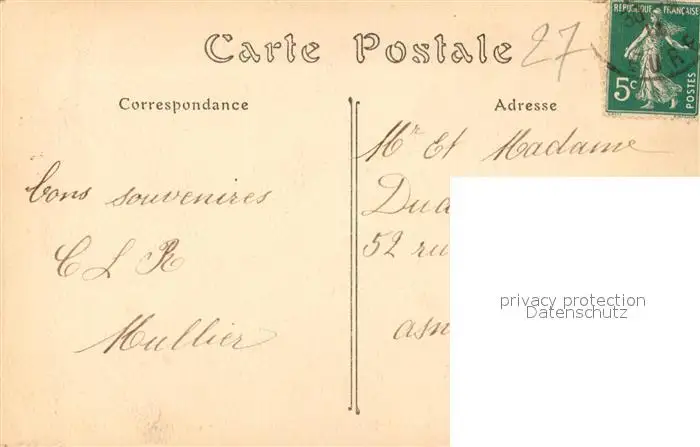 Carte Postale
27
REPUBLIQUE FRANÇAISE
5c
POSTES
Correspondance
Adresse
bons souvenires
C L R
Mullier
Mr Et Madame
52 ru
asn
privacy protection
Datenschutz